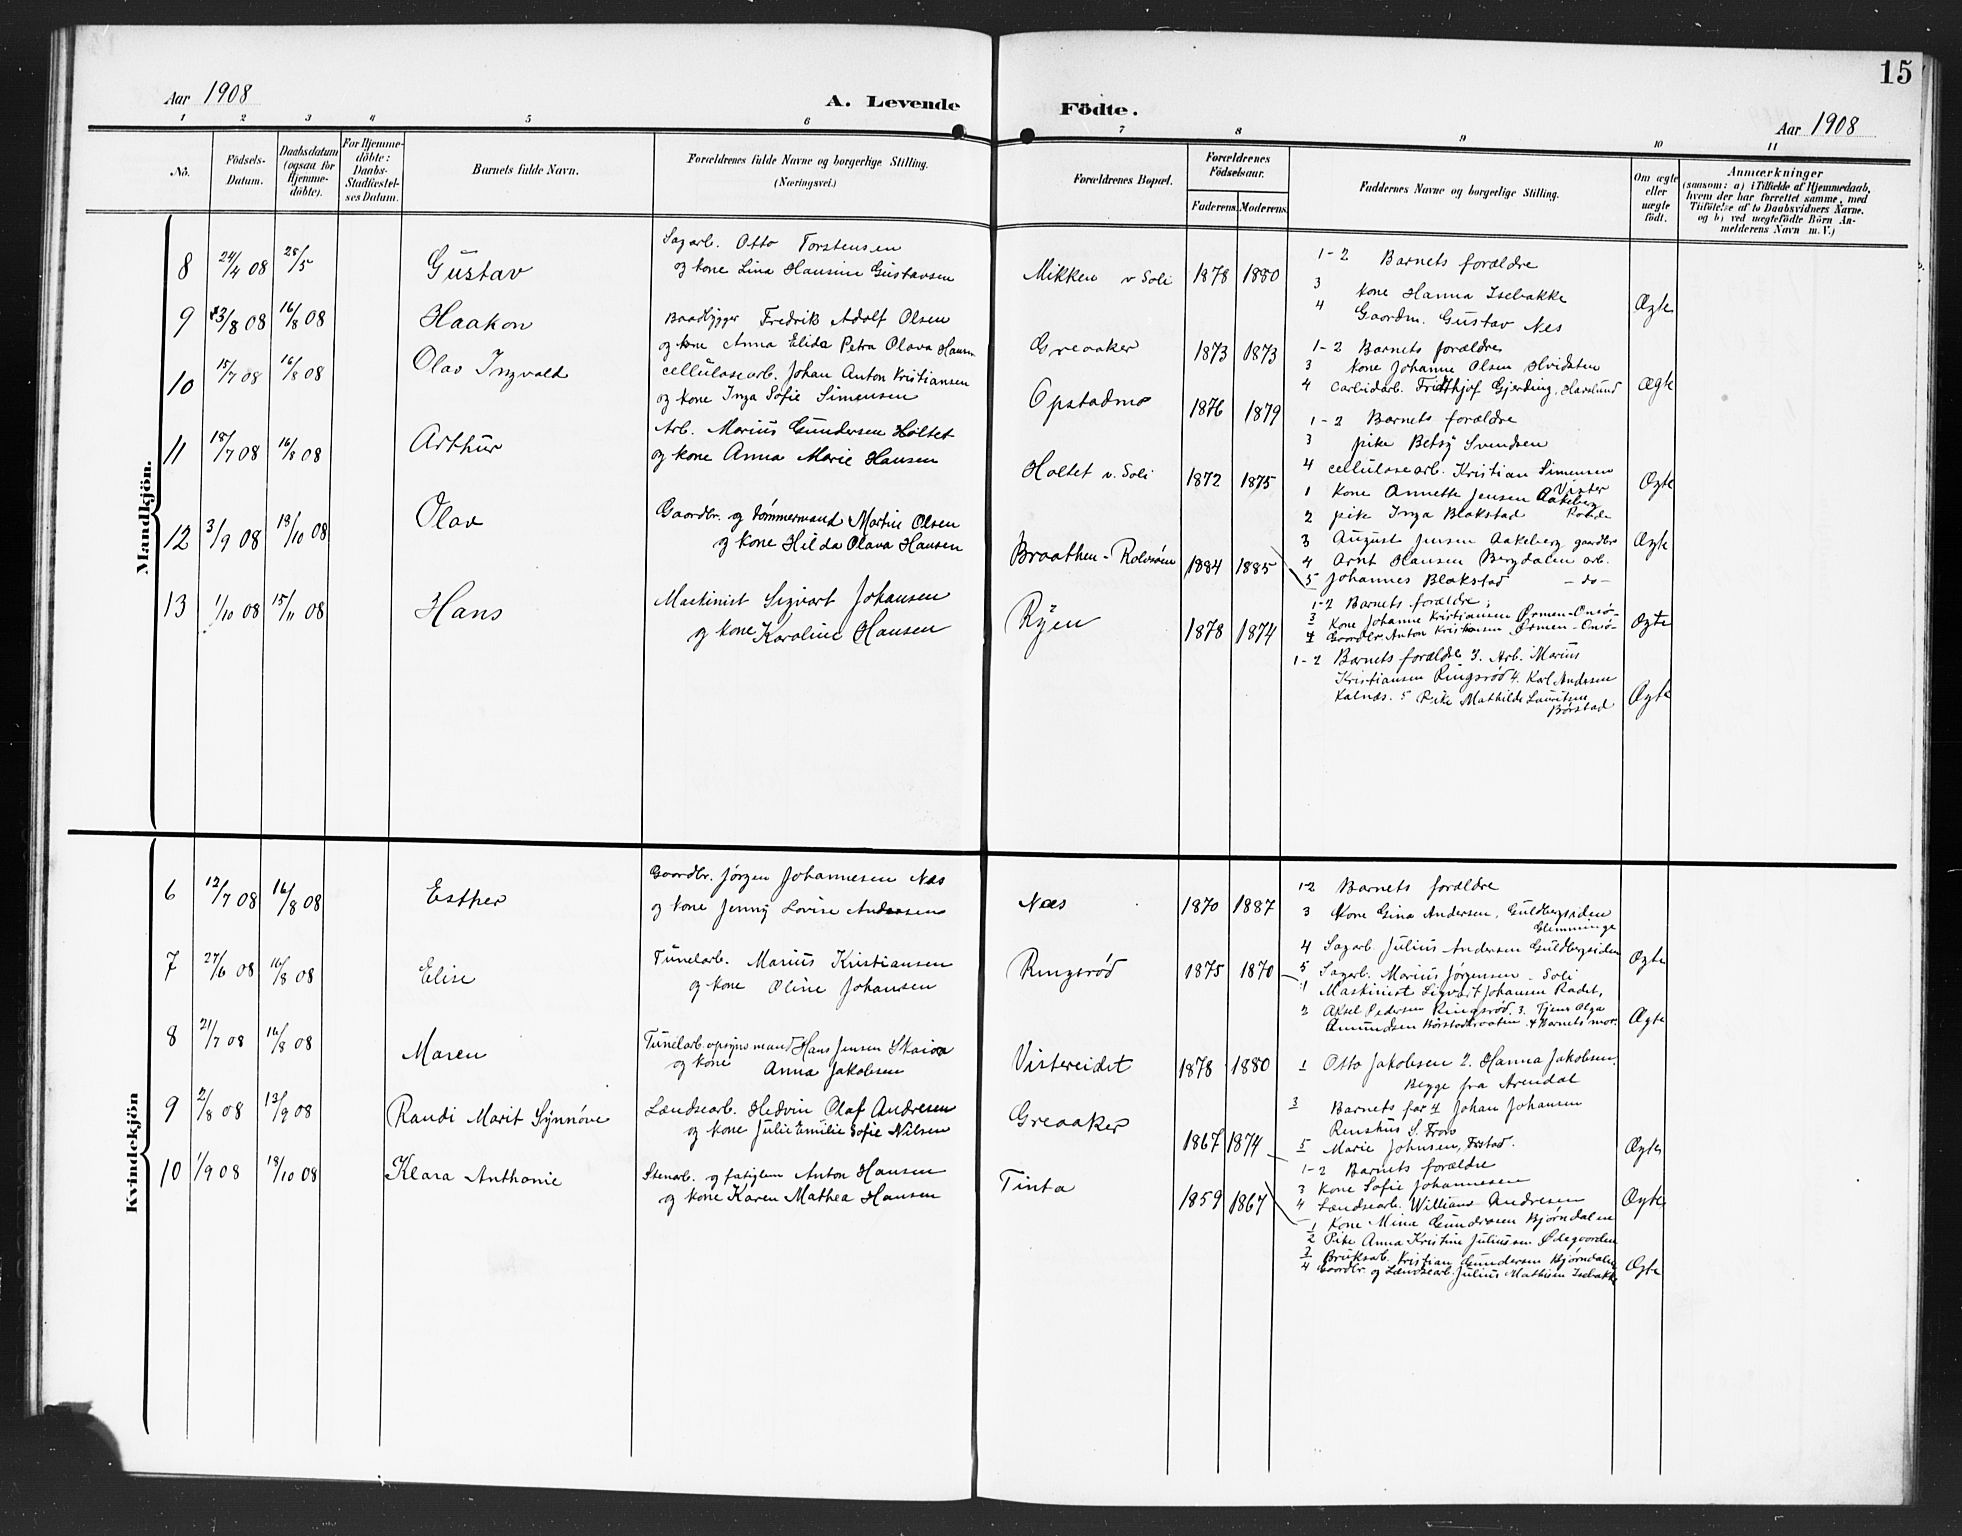 15
Aar 1908
A. Levende
Födte.
Aar 1908
1 2 3 4 5 6 7 8 9 10 11
No.
Födsels-
Datum.
Daabsdatum
(ogsaa for
Hjemme-
döbte).
For Hjemme-
döbte:
Daabs-
Stadfæstel-
ses Datum.
Barnets fulde Navn.
Forældrenes fulde Navne og borgerlige Stilling.
(Næringsvei.)
Forældrenes Bopæl.
Forældrenes
Födselsaar.
Faderens. Moderens.
Faddernes Navne og borgerlige Stilling.
Om ægte
eller
uægte
födt.
Anmærkninger
(saasom: a) i Tilfælde af Hjemmedaab,
hvem der har forrettet samme, med
Tilföielse af to Daabsvidners Navne,
og b) ved uegtefödte Börn An-
melderens Navn m. V.)
Mandkjön.
8 24/4 08 28/5 Gustav
Sagarb. Otto Torstensen
og kone Lina Hansine Gustavsen
Mikken v Soli 1878 1880
1-2 Barnets forældre
3 kone Hanna Isebakke
4 Gaardm. Gustav Nes
Ægte
9 13/8 08 16/8 08 Haakon
Baadbygger Fredrik Adolf Olsen
og kone Anna Elida Petra Olava Hansen
Greaaker 1873 1873
1-2 Barnets forældre
3 kone Johanne Olsen Hvidsten
4 Carbidarb. Fridthjof Gjerding, Havslund
Ægte
10 15/7 08 16/8 08 Olav Ingvald
Cellulosearb. Johan Anton Kristiansen
og kone Inga Sofie Simensen
Opstadmo 1876 1879
1-2 Barnets forældre
3 pike Betsy Svendsen
4 cellulosearb. Kristian Simensen
Vister
Ægte
11 18/7 08 16/8 08 Arthur
Arb. Marius Gundersen Holtet
og kone Anna Marie Hansen
Holtet v. Soli 1872 1875
1 kone Annette Jensen Aakeberg
2 pike Inga Blakstad Raade
3 August Jensen Aakeberg gaardbr
4 Arnt Hansen Bergdalen arb.
5 Johannes Blakstad - do -
Ægte
12 3/9 08 18/10 08 Olav
Gaardbr. og tømmermand Martin Olsen
og kone Hilda Olava Hansen
Braathen - Rolvsøen 1884 1885
1-2 Barnets forældre;
3 Kone Johanne Kristiansen Ørmen - Onsø -
4 Gaardbr. Anton Kristiansen Ørmen - Onsø -
Ægte
13 1/10 08 15/11 08 Hans
Maskinist Sigvart Johansen
og kone Karoline Hansen
Ryen 1878 1874
1-2 Barnets forældre 3. Arb. Marius
Kristiansen Ringsrød 4. Karl Andersen
Kalnæs. 5 Pike Mathilde Lauritsen
Børstad
Ægte
Kvindekjön
6 12/7 08 16/8 08 Esther
Gaardbr. Jørgen Johannesen Næs
og kone Jenny Lovise Andersen
Næs 1870 1887
1-2 Barnets forældre
3 Kone Gina Andersen, Guldbergsiden
Glemminge
4 Sagarb. Julius Andersen Guldbergsiden
5 Sagarb. Marius Jørgensen - Soli
Ægte
7 27/6 08 16/8 08 Elise
Tunelarb. Marius Kristiansen
og kone Oline Johansen
Ringsrød 1875 1870
1 Maskinist Sigvart Johansen Rødet,
2 Aksel Pedersen Ringsrød. 3. Tjener Olga
Amundsen Børstadbraaten. 4 Barnets mor.
Ægte
8 21/7 08 16/8 08 Maren
Tunelarb.opsynsmand Hans Jensen Skaiaa
og kone Anna Jakobsen
Vistereidet 1878 1880
1 Otto Jakobsen 2. Hanna Jakobsen
Begge fra Arendal
3 Barnets far 4 Johan Johansen
5 Marie Johnsen, Frstad.
Ægte
9 2/8 08 13/9 08 Randi Marit Synnøve
Lændsearb. Hedvin Olaf Andresen
og kone Julie Emilie Sofie Nilsen
Greaaker 1867 1874
1-2 Barnets forældre
3 kone Sofie Johannesen
4 Lændsearb. William Andresen
Ægte
10 1/9 08 18/10 08 Klara Anthonie
Stenarb. og fatiglem Anton Hansen
og kone Karen Mathea Hansen
Tinta 1859 1867
1 Kone Mina Gundersen Bjørndalen
2 Pike Anna Kristine Juliussen Ødegaarden
3 Bruksarb. Kristian Gundersen Bjørndalen
4 Gaardbr. og Lændsearb. Julius Mathisen Isebakke
Ægte